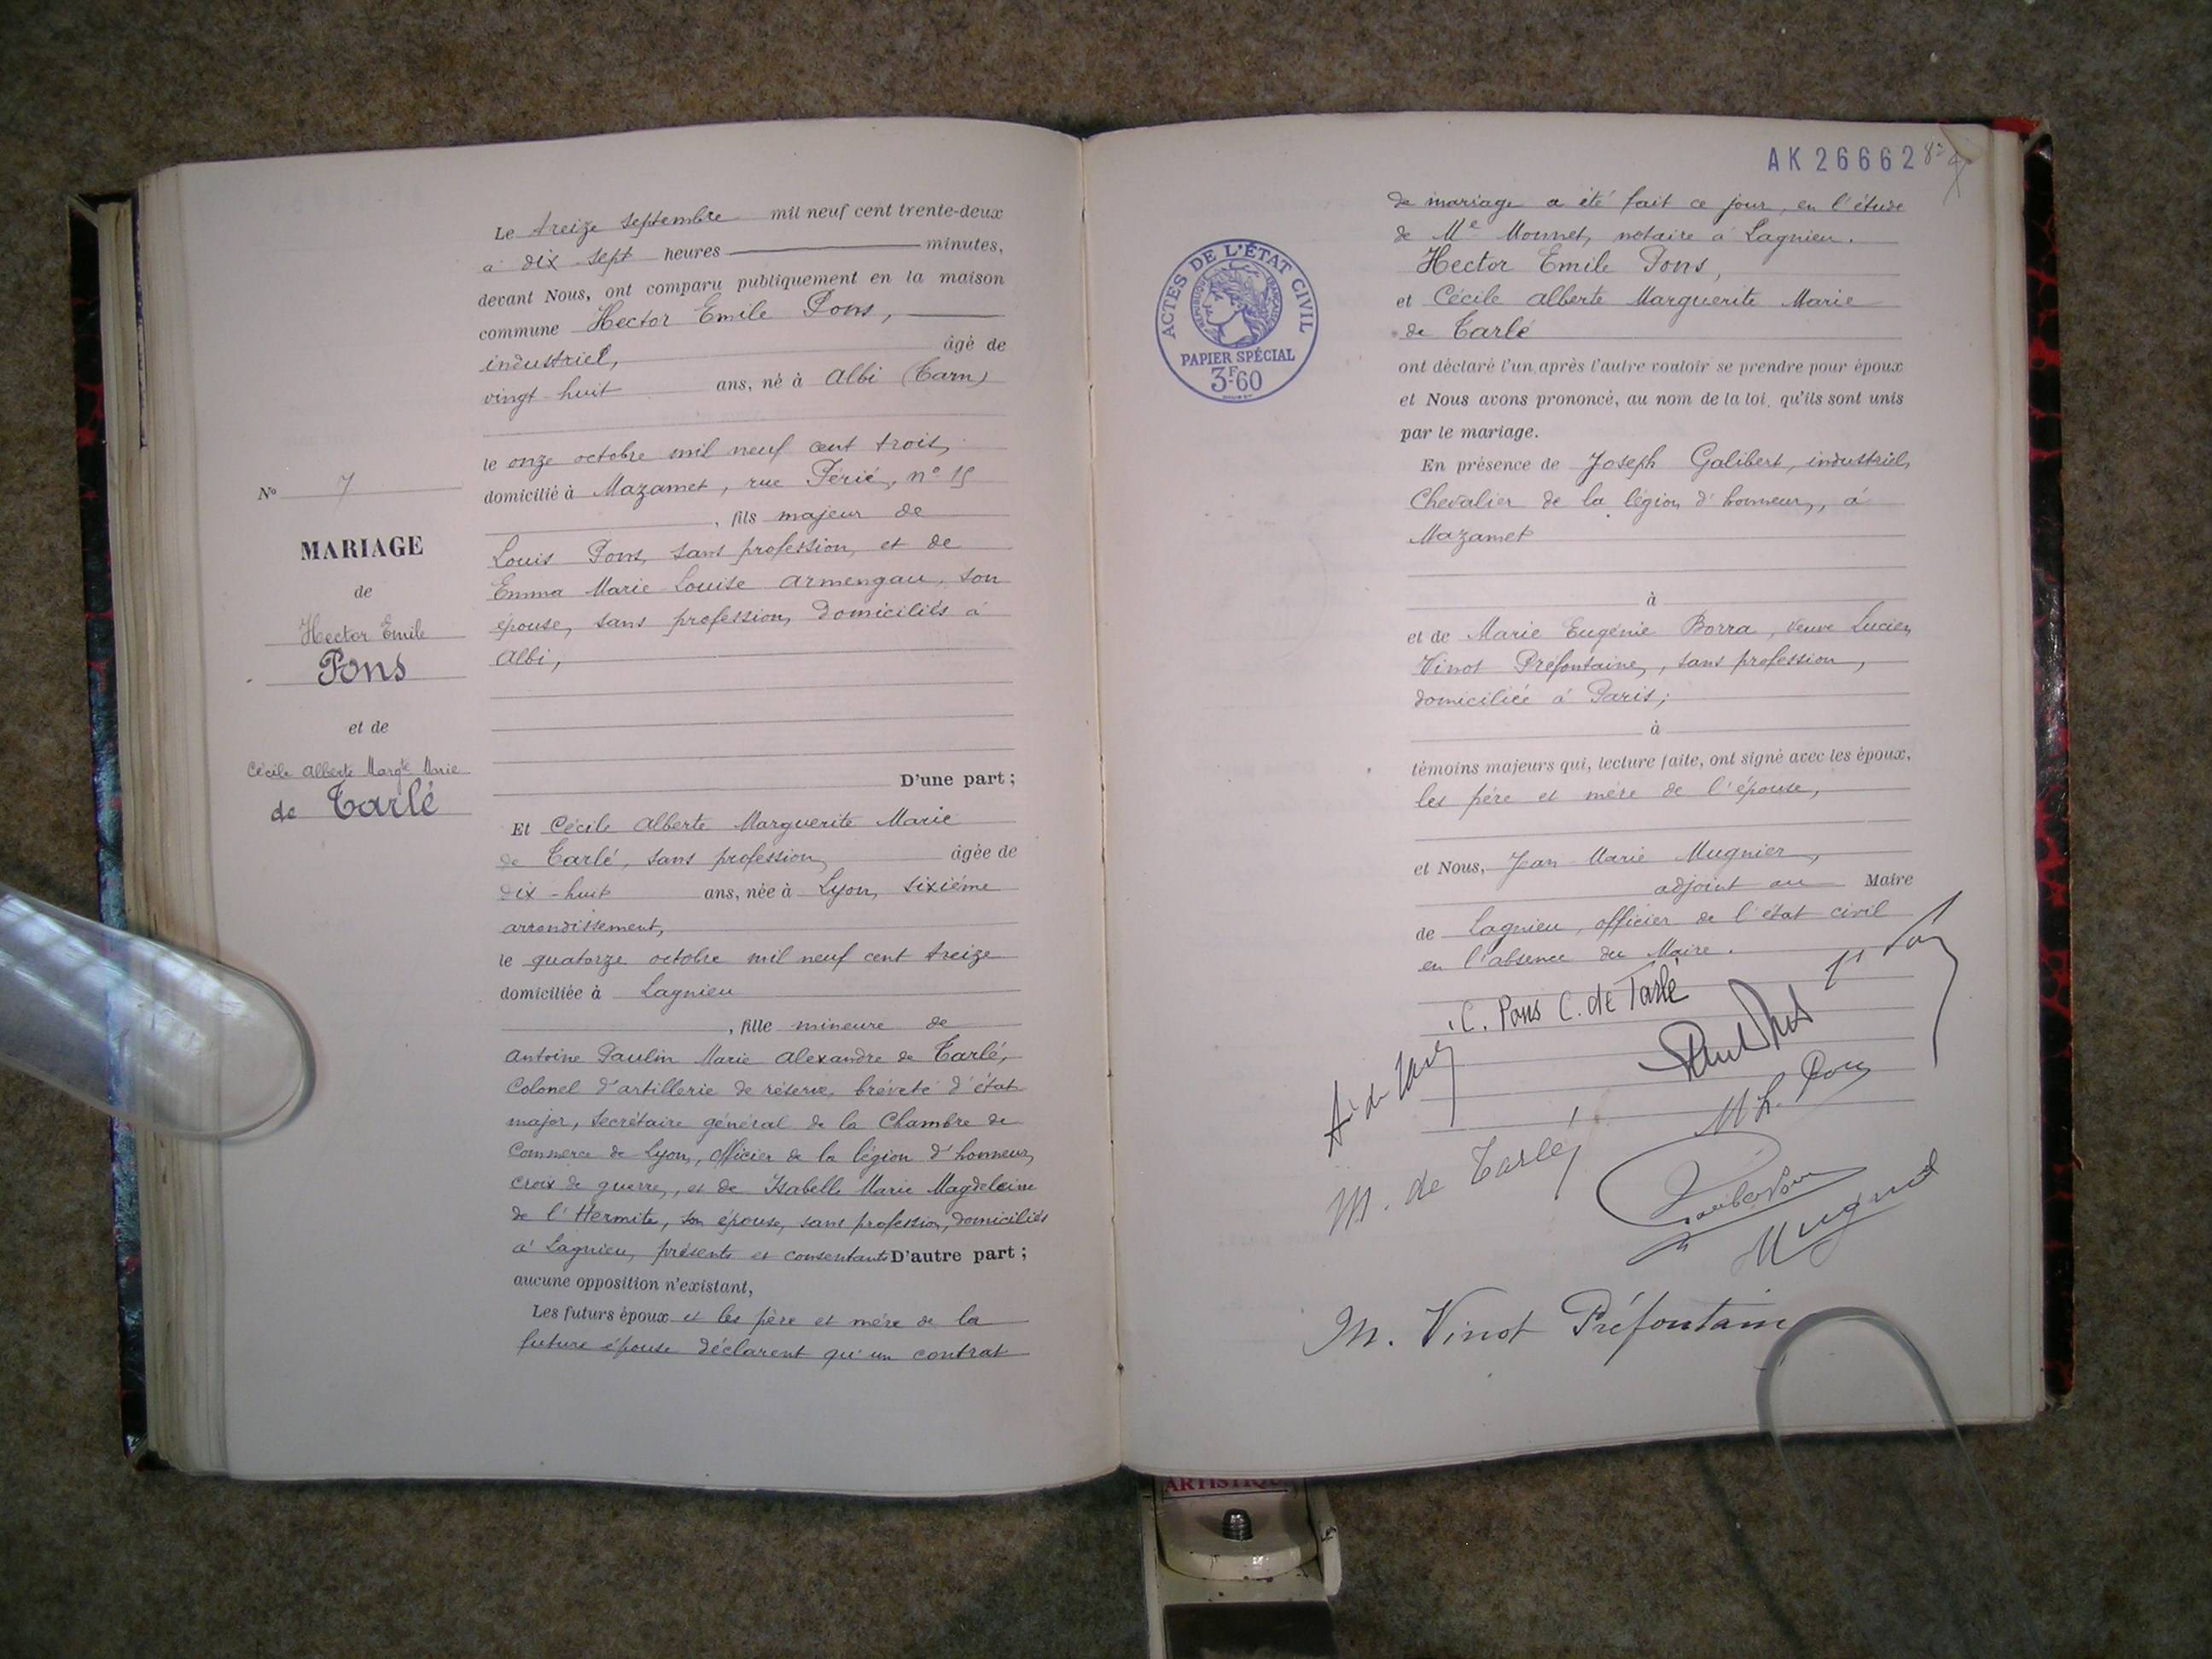 Le treize septembre mil neuf cent trente-deux
à dix sept heures minutes,
devant Nous, ont comparu publiquement en la maison
commune Hector Emile Pons,
industriel, âgé de
vingt huit ans, né à Albi (Tarn)
le onze octobre mil neuf cent trois,
domicilié à Mazamet, rue Périé, n° 15
, fils majeur de
Louis Pons, sans profession, et de
Emma Marie Louise Armengau, son
épouse, sans profession, domiciliés à
Albi,
D'une part ;
N° 7
MARIAGE
de
Hector Emile
Pons
et de
Cécile Alberte Margte Marie
de Tarlé
Et Cécile Alberte Marguerite Marie
de Tarlé, sans profession, âgée de
dix-huit ans, née à Lyon, sixième
arrondissement,
le quatorze octobre mil neuf cent treize
domiciliée à Lagnieu
, fille mineure de
Antoine Paulin Marie Alexandre de Tarlé,
Colonel d'artillerie de réserve, breveté d'état
major, secrétaire général de la Chambre de
Commerce de Lyon, officier de la légion d'honneur,
croix de guerre, et de Isabelle Marie Magdeleine
de l'Hermite, son épouse, sans profession, domiciliés
à Lagnieu, présents et consentants D'autre part ;
aucune opposition n'existant,
Les futurs époux et les père et mère de la
future épouse déclarent qu'un contrat
AK 26662
ACTES DE L'ÉTAT CIVIL
RÉPUBLIQUE FRANÇAISE
PAPIER SPÉCIAL
3F60
de mariage a été fait ce jour, en l'étude
de Me Monnet, notaire à Lagnieu.
Hector Emile Pons,
et Cécile Alberte Marguerite Marie
de Tarlé
ont déclaré l'un après l'autre vouloir se prendre pour époux
et Nous avons prononcé, au nom de la loi, qu'ils sont unis
par le mariage.
En présence de Joseph Galibert, industriel,
Chevalier de la légion d'honneur, à
Mazamet
à
et de Marie Eugénie Borra, veuve Lucien
Vinot Préfontaine, sans profession,
domiciliée à Paris;
à
témoins majeurs qui, lecture faite, ont signé avec les époux,
les père et mère de l'épouse,
et Nous, Jean Marie Mugnier,
adjoint au Maire
de Lagnieu, officier de l'état civil
en l'absence du Maire.
C. Pons C. de Tarlé
M. L. Pons
M. de Tarlé
Mugnier
M. Vinot Préfontaine
ARTISTIQUE